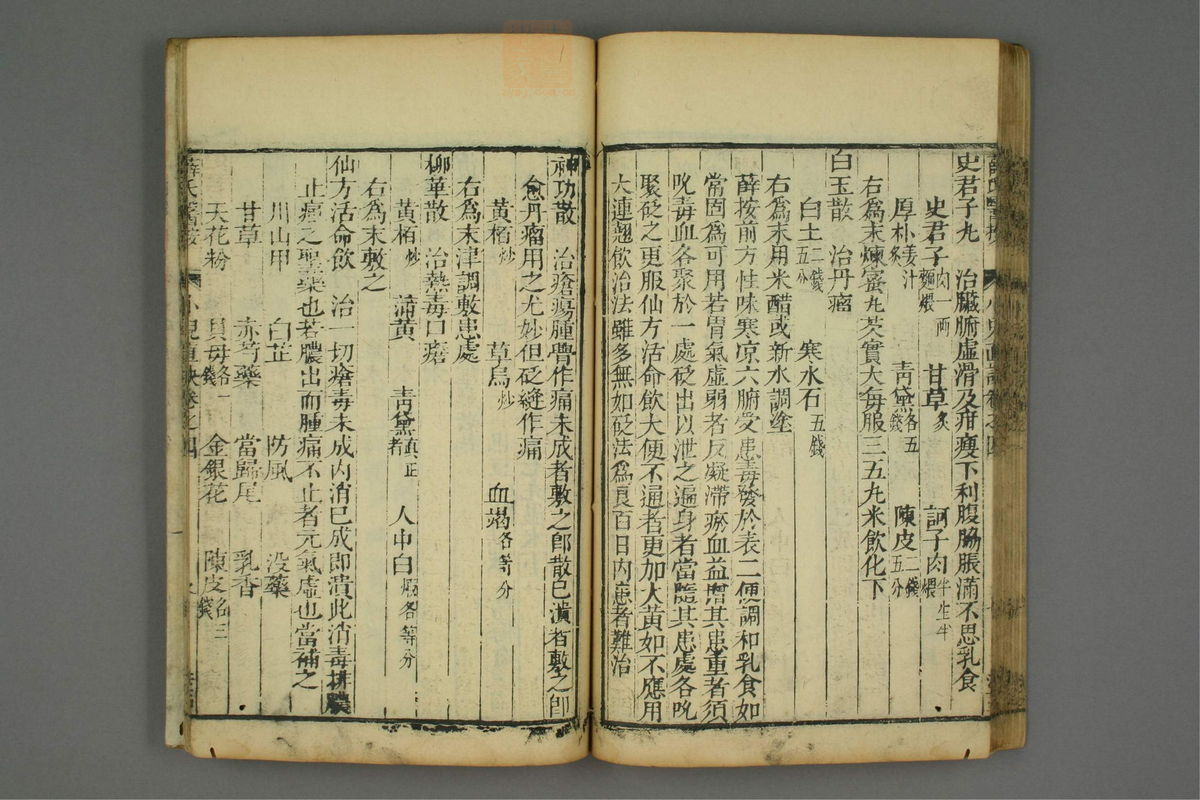 史君子丸　治臟腑虛滑及疳瘦下利腹脇脹滿不思乳食
史君子肉一兩麵煨　甘草炙　訶子肉半生半煨
厚朴姜汁炙　青黛各五錢　陳皮二錢五分
右爲末煉蜜丸芡實大每服三五丸米飲化下
白玉散　治丹瘤
白土二錢五分　寒水石五錢
右爲末用米醋或新水調塗
薛按前方性味寒凉六腑受患毒發於表二便調和乳食如
常固爲可用若胃氣虛弱者反凝滯瘀血益增其患重者須
吮毒血各聚於一處砭出以泄之遍身者當隨其患處各吮
聚砭之更服仙方活命飲大便不通者更加大黃如不應用
大連翹飲治法雖多無如砭法爲良百日內患者難治
神功散　治瘡瘍腫𦜉作痛未成者敷之即散已潰者敷之即
愈丹瘤用之尤妙但砭縫作痛
黃栢炒　草烏炒　血竭各等分
右爲末津調敷患處
柳華散　治熱毒口瘡
黃栢炒　蒲黃　青黛真正者　人中白煆各等分
右爲末敷之
仙方活命飲　治一切瘡毒未成內消已成即潰此消毒排膿
止痛之聖藥也若膿出而腫痛不止者元氣虛也當補之
川山甲　白芷　防風　没藥
甘草　赤芍藥　當歸尾　乳香
天花粉　貝母各一錢　金銀花　陳皮各三錢
薛氏醫按　小兒直訣卷之四